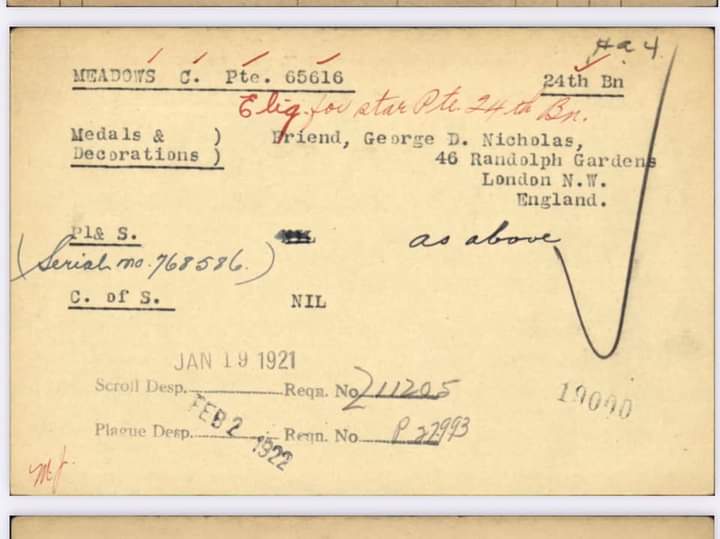 #a 4
MEADOWS C. Pte. 65616 24th Bn
Elig. for star Pte. 24th Bn.
Medals & ) Friend, George D. Nicholas,
Decorations ) 46 Randolph Gardens
London N.W.
England.
Pl& S. as above
(Serial no. 768586.)
C. of S. NIL
JAN 19 1921
Scroll Desp. Reqn. No. 211205
FEB 2 1922
Plaque Desp. Reqn. No. P 27993